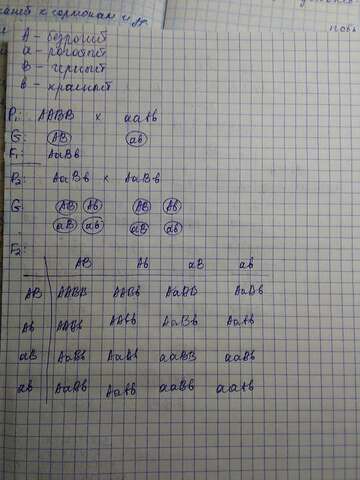 А - безрогий
а - рогатый
В - чёрный
в - красный
P₁: AABB x aabb
G: AB ab
F₁: AaBb
P₂: AaBb x AaBb
G: AB Ab AB Ab
aB ab aB ab
F₂:
AB Ab aB ab
AB AABB AABb AaBB AaBb
Ab AABb AAbb AaBb Aabb
aB AaBb AaBb aaBB aaBb
ab AaBb Aabb aaBb aabb